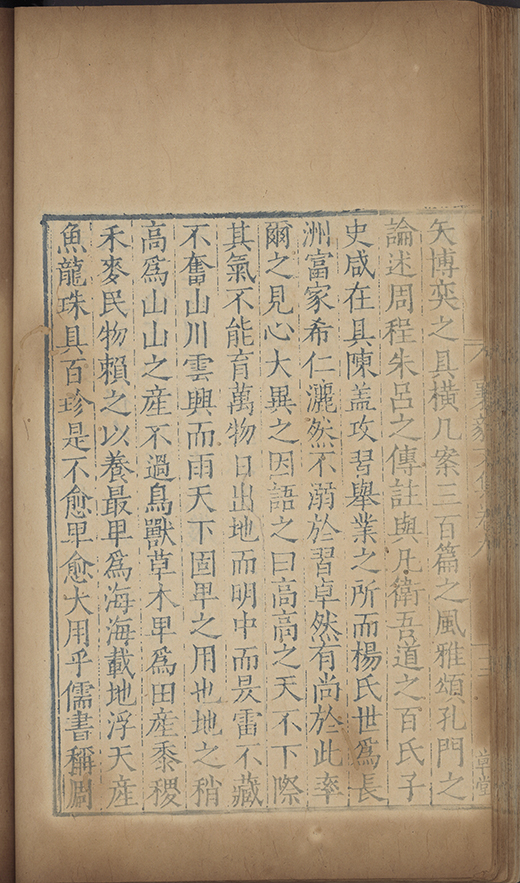 矢博奕之具橫几案三百篇之風雅頌孔門之
論述周程朱呂之傳註與凡衛吾道之百氏子
史咸在具陳盖攻習舉業之所而楊氏世爲長
洲富家希仁灑然不溺於習卓然有尚於此率
爾之見心大異之因語之曰高高之天不下際
其氣不能育萬物日出地而明中而昃雷不藏
不奮山川雲興而雨天下固卑之用也地之稍
高爲山山之産不過鳥獸草木卑爲田産黍稷
禾麥民物賴之以養最卑爲海海載地浮天産
魚龍珠具百珍是不愈卑愈大用乎儒書稱周